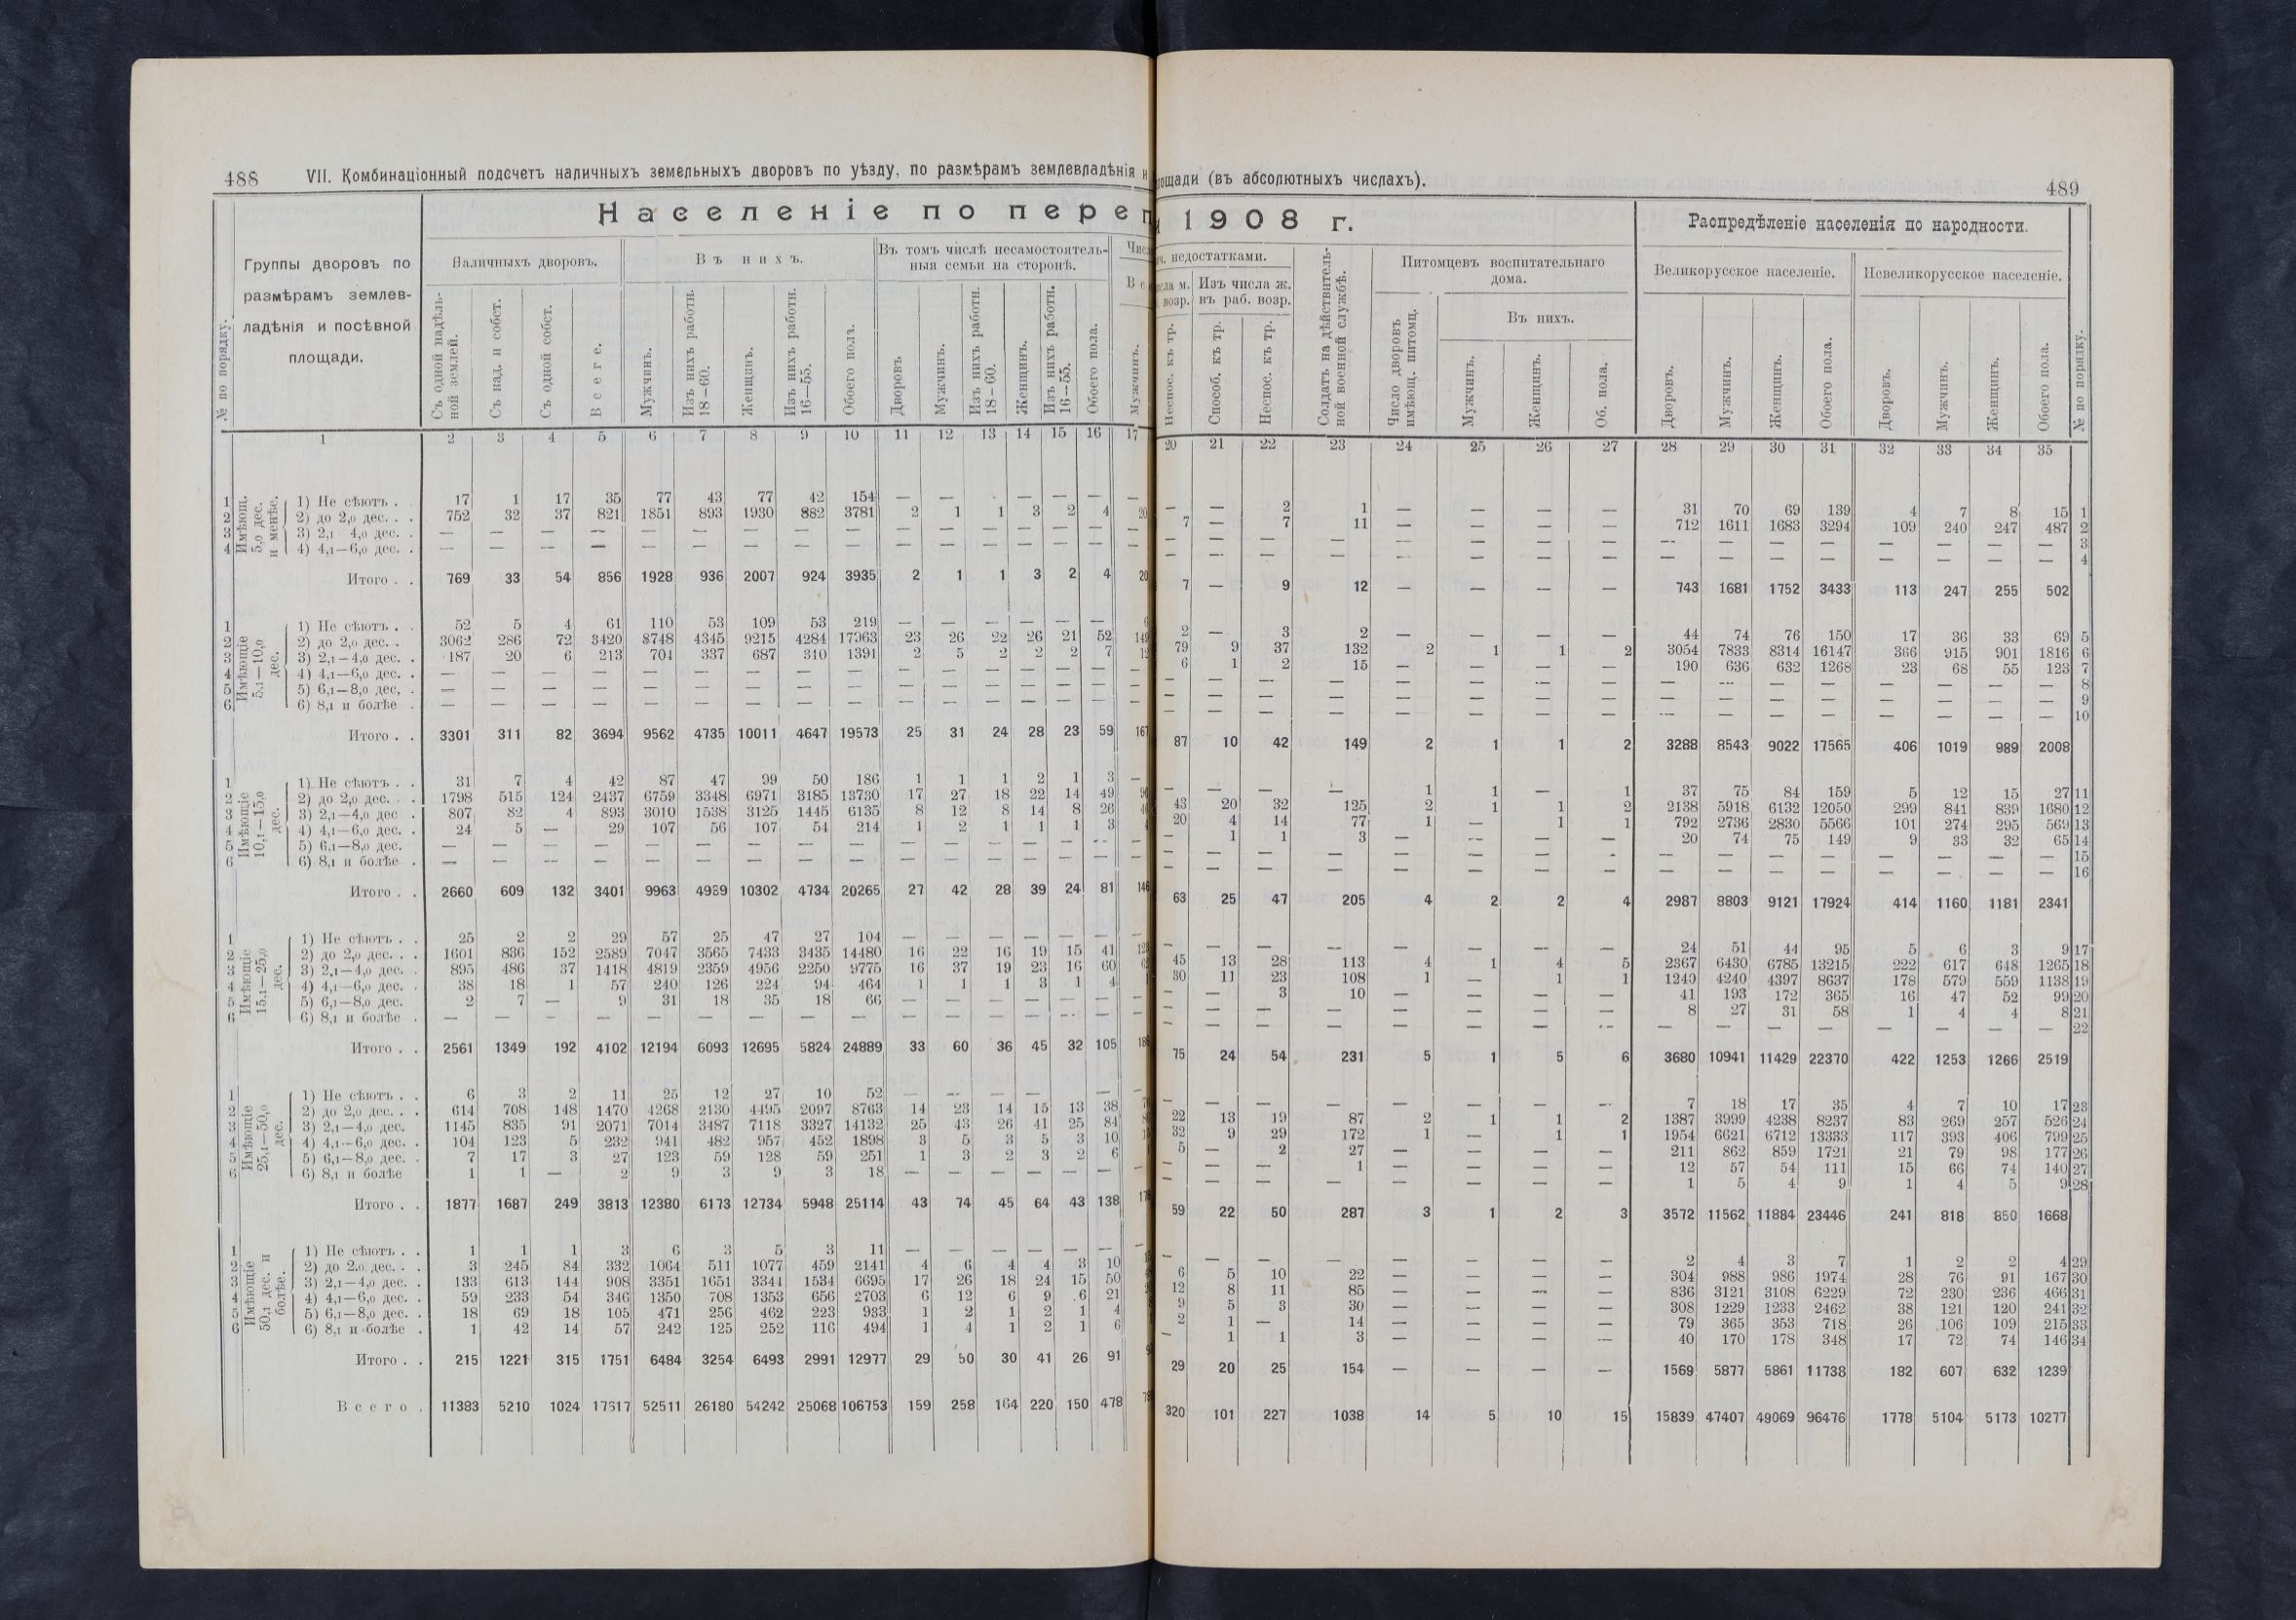 488 VII. Комбинаціонный подсчетъ наличныхъ земельныхъ дворовъ по уѣзду, по размѣрамъ землевладѣнія и
Населеніе по переп
№ по порядку.
Группы дворовъ по размѣрамъ землевладѣнія и посѣвной площади.
Наличныхъ дворовъ.
Въ нихъ.
Въ томъ числѣ несамостоятельныя семьи на сторонѣ.
Съ одной надѣльной землей.
Съ над. и собст.
Съ одной собст.
Всего.
Мужчинъ.
Изъ нихъ работн. 18–60.
Женщинъ.
Изъ нихъ работн. 16–55.
Обоего пола.
Дворовъ
Мужчинъ.
Изъ нихъ работн. 18–60.
Женщинъ.
Изъ нихъ работн. 16–55.
Обоего пола.
Мужчинъ.
1 2 3 4 5 6 7 8 9 10 11 12 13 14 15 16 17
Имѣющ. 5,0 дес. и менѣе.
1 1) Не сѣютъ . . 17 1 17 35 77 43 77 42 154 — — - — — — —
2 2) до 2,0 дес. . . 752 32 37 821 1851 893 1930 882 3781 2 1 1 3 2 4 20
3 3) 2,1 4,0 дес. . — — — — — — — — — — — — — — — —
4 4) 4,1—6,0 дес. . — — — — — — — — — — — — — — — —
Итого . . 769 33 54 856 1928 936 2007 924 3935 2 1 1 3 2 4 20
Имѣющіе 5,1—10,0 дес.
1 1) Не сѣютъ . . 52 5 4 61 110 53 109 53 219 — — — — — —
2 2) до 2,0 дес. . 3062 286 72 3420 8748 4345 9215 4284 17963 23 26 22 26 21 52 149
3 3) 2,1—4,0 дес. . 187 20 6 213 704 337 687 310 1391 2 5 2 2 2 7 12
4 4) 4,1—6,0 дес. . — — — — — — — — — — — — — — — —
5 5) 6,1—8,0 дес. . — — — — — — — — — — — — — — — —
6 6) 8,1 и болѣе . — — — — — — — — — — — — — — — —
Итого . . 3301 311 82 3694 9562 4735 10011 4647 19573 25 31 24 28 23 59 167
Имѣющіе 10,1—15,0 дес.
1 1) Не сѣютъ . . 31 7 4 42 87 47 99 50 186 1 1 1 2 1 3 —
2 2) до 2,0 дес. . . 1798 515 124 2437 6759 3348 6971 3185 13730 17 27 18 22 14 49
3 3) 2,1—4,0 дес . 807 82 4 893 3010 1538 3125 1445 6135 8 12 8 14 8 26
4 4) 4,1—6,0 дес. . 24 5 — 29 107 56 107 54 214 1 2 1 1 1 3
5 5) 6,1—8,0 дес. — — — — — — — — — — — — — — — —
6 6) 8,1 и болѣе . — — — — — — — — — — — — — — — —
Итого . . 2660 609 132 3401 9963 4989 10302 4734 20265 27 42 28 39 24 81 146
Имѣющіе 15,1—25,0 дес.
1 1) Не сѣютъ . . 25 2 2 29 57 25 47 27 104 — — — — — —
2 2) до 2,0 дес. . . 1601 836 152 2589 7047 3565 7433 3435 14480 16 22 16 19 15 41
3 3) 2,1—4,0 дес. . 895 486 37 1418 4819 2359 4956 2250 9775 16 37 19 23 16 60
4 4) 4,1—6,0 дес. . 38 18 1 57 240 126 224 94 464 1 1 1 3 1 4
5 5) 6,1—8,0 дес. 2 7 — 9 31 18 35 18 66 — — — — — —
6 6) 8,1 и болѣе . — — — — — — — — — — — — — — —
Итого . . 2561 1349 192 4102 12194 6093 12695 5824 24889 33 60 36 45 32 105
Имѣющіе 25,1—50,0 дес.
1 1) Не сѣютъ . . 6 3 2 11 25 12 27 10 52 — — — — —
2 2) до 2,0 дес. . . 614 708 148 1470 4268 2130 4495 2097 8763 14 23 14 15 13 38
3 3) 2,1—4,0 дес. 1145 835 91 2071 7014 3487 7118 3327 14132 25 43 26 41 25 84
4 4) 4,1—6,0 дес. . 104 123 5 232 941 482 957 452 1898 3 5 3 5 3 10
5 5) 6,1—8,0 дес. . 7 17 3 27 123 59 128 59 251 1 3 2 3 2 6
6 6) 8,1 и болѣе 1 1 — 2 9 3 9 3 18 — — — — — —
Итого . . 1877 1687 249 3813 12380 6173 12734 5948 25114 43 74 45 64 43 138
Имѣющіе 50,1 дес. и болѣе.
1 1) Не сѣютъ . . 1 1 1 3 6 3 5 3 11 — — — — — —
2 2) до 2.0 дес. . . 3 245 84 332 1064 511 1077 459 2141 4 6 4 4 3 10
3 3) 2,1—4,0 дес. . 133 613 144 908 3351 1651 3344 1534 6695 17 26 18 24 15 50
4 4) 4,1—6,0 дес. . 59 233 54 346 1350 708 1353 656 2703 6 12 6 9 6 21
5 5) 6,1—8,0 дес. . 18 69 18 105 471 256 462 223 933 1 2 1 2 1 4
6 6) 8,1 и болѣе . 1 42 14 57 242 125 252 116 494 1 4 1 2 1 6
Итого . . 215 1221 315 1751 6484 3254 6493 2991 12977 29 50 30 41 26 91
Всего . 11383 5210 1024 17617 52511 26180 54242 25068 106753 159 258 164 220 150 478
ощади (въ абсолютныхъ числахъ). 489
1908 г.
Распредѣленіе населенія по народности.
ч. недостатками.
Изъ числа ж. въ раб. возр.
Солдатъ на дѣйствительной военной службѣ.
Питомцевъ воспитательнаго дома.
Великорусское населеніе.
Невеликорусское населеніе.
Неспос. къ тр.
Способ. къ тр.
Неспос. къ тр.
Число дворовъ имѣющ. питомц.
Въ нихъ.
Мужчинъ.
Женщинъ.
Об. пола.
Дворовъ.
Мужчинъ.
Женщинъ.
Обоего пола.
Дворовъ.
Мужчинъ.
Женщинъ.
Обоего пола.
№ по порядку.
20 21 22 23 24 25 26 27 28 29 30 31 32 33 34 35
— — 2 1 — — — — 31 70 69 139 4 7 8 15 1
7 — 7 11 — — — — 712 1611 1683 3294 109 240 247 487 2
— — — — — — — — — — — — — — — — 3
— — — — — — — — — — — — — — — — 4
7 — 9 12 — — — — 743 1681 1752 3433 113 247 255 502
2 — 3 2 — — — — 44 74 76 150 17 36 33 69 5
79 9 37 132 2 1 1 2 3054 7833 8314 16147 366 915 901 1816 6
6 1 2 15 — — — — 190 636 632 1268 23 68 55 123 7
— — — — — — — — — — — — — — — — 8
— — — — — — — — — — — — — — — — 9
— — — — — — — — — — — — — — — — 10
87 10 42 149 2 1 1 2 3288 8543 9022 17565 406 1019 989 2008
— — — — 1 1 — 1 37 75 84 159 5 12 15 27 11
43 20 32 125 2 1 1 2 2138 5918 6132 12050 299 841 839 1680 12
20 4 14 77 1 — 1 1 792 2736 2830 5566 101 274 295 569 13
— 1 1 3 — — — — 20 74 75 149 9 33 32 65 14
— — — — — — — — — — — — — — — — 15
— — — — — — — — — — — — — — — — 16
63 25 47 205 4 2 2 4 2987 8803 9121 17924 414 1160 1181 2341
— — — — — — — — 24 51 44 95 5 6 3 9 17
45 13 28 113 4 1 4 5 2367 6430 6785 13215 222 617 648 1265 18
30 11 23 108 1 — 1 1 1240 4240 4397 8637 178 579 559 1138 19
— — 3 10 — — — — 41 193 172 365 16 47 52 99 20
— — — — — — — — 8 27 31 58 1 4 4 8 21
— — — — — — — — — — — — — — — — 22
75 24 54 231 5 1 5 6 3680 10941 11429 22370 422 1253 1266 2519
— — — — — — — — 7 18 17 35 4 7 10 17 23
22 13 19 87 2 1 1 2 1387 3999 4238 8237 83 269 257 526 24
32 9 29 172 1 — 1 1 1954 6621 6712 13333 117 393 406 799 25
5 — 2 27 — — — — 211 862 859 1721 21 79 98 177 26
— — — 1 — — — — 12 57 54 111 15 66 74 140 27
— — — — — — — — 1 5 4 9 1 4 5 9 28
59 22 50 287 3 1 2 3 3572 11562 11884 23446 241 818 850 1668
— — — — — — — — 2 4 3 7 1 2 2 4 29
6 5 10 22 — — — — 304 988 986 1974 28 76 91 167 30
12 8 11 85 — — — — 836 3121 3108 6229 72 230 236 466 31
9 5 3 30 — — — — 308 1229 1233 2462 38 121 120 241 32
2 1 — 14 — — — — 79 365 353 718 26 106 109 215 33
— 1 1 3 — — — — 40 170 178 348 17 72 74 146 34
29 20 25 154 — — — — 1569 5877 5861 11738 182 607 632 1239
320 101 227 1038 14 5 10 15 15839 47407 49069 96476 1778 5104 5173 10277